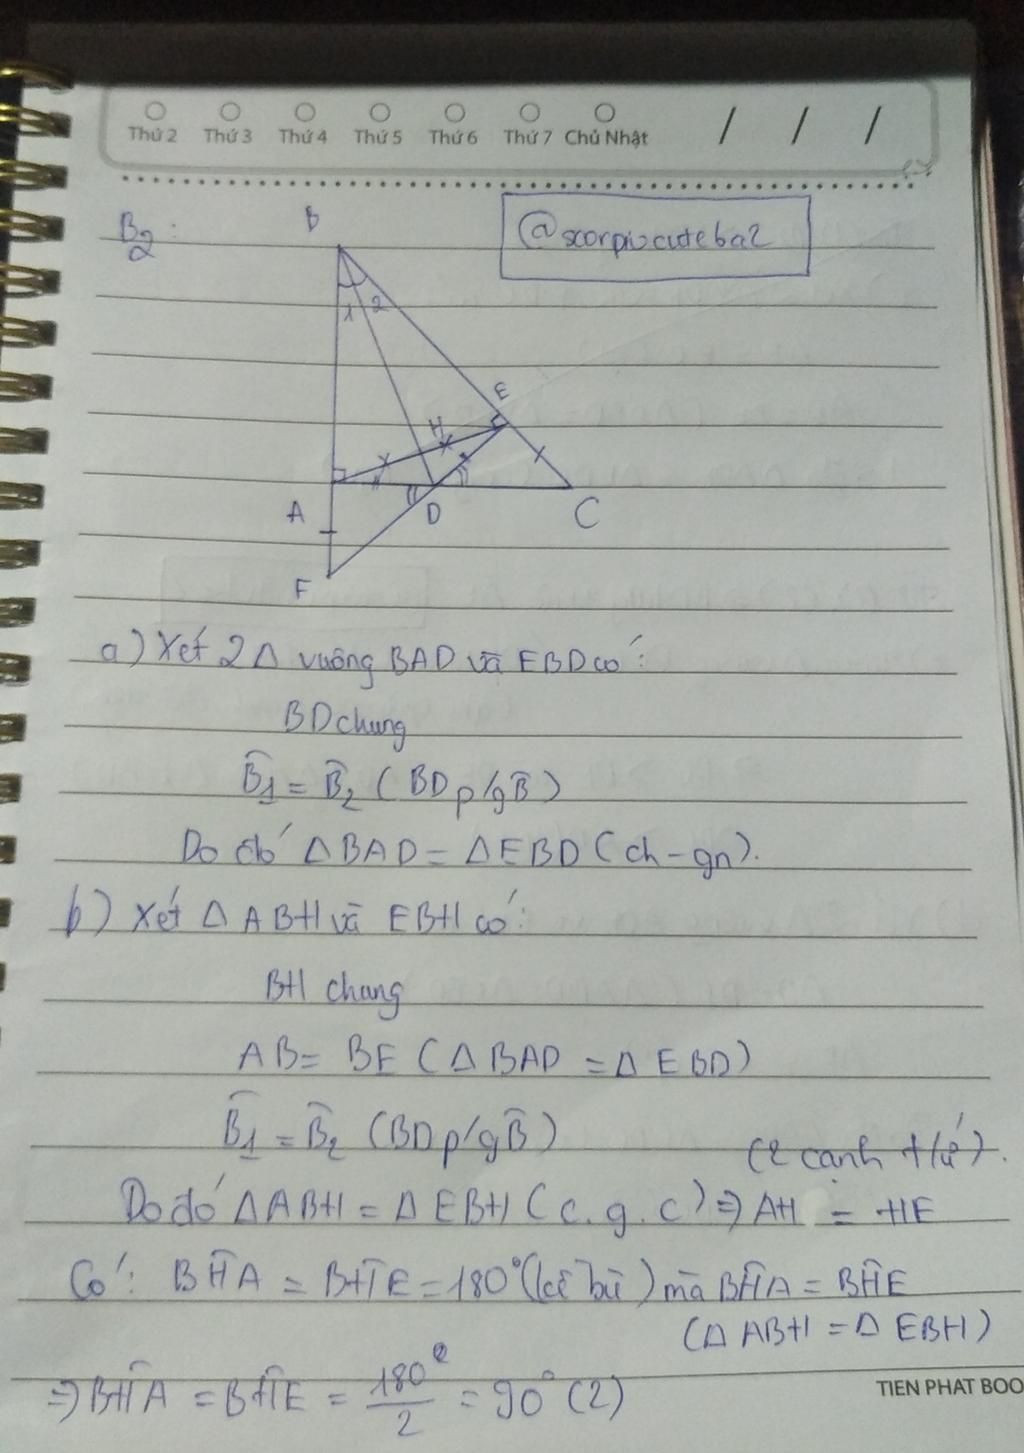 Thứ 2 Thứ 3 Thứ 4 Thứ 5 Thứ 6 Thứ 7 Chủ Nhật / / /
B2:
@scorpiocuteba2
B
1 2
E
H
A D C
F
a) Xét 2 Δ vuông BAD và EBD có:
BD chung
B̂1 = B̂2 (BD p/g B̂)
Do đó ΔBAD = ΔEBD (ch-gn).
b) Xét Δ ABH và EBH có:
BH chung
AB = BE (Δ BAD = Δ EBD)
B̂1 = B̂2 (BD p/g B̂)
(2 cạnh t/ứ).
Do đó ΔABH = Δ EBH (c.g.c) ⇒ AH = HE
Có: BĤA = BĤE = 180° (kề bù) mà BĤA = BĤE
(Δ ABH = Δ EBH)
⇒ BĤA = BĤE = 180°/2 = 90° (2)
TIEN PHAT BOO